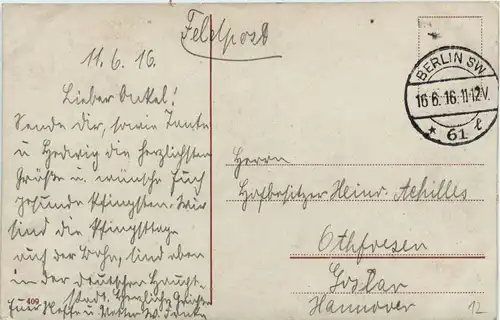 Feldpost
11.6.16.
Lieber Onkel!
Sende dir, sowie Tante
u Hedwig die herzlichsten
Grüße u. wünsche Euch
gesunde Pfingsten. Wir
sind die Pfingsttage
auf der Bahn, sind eben
in der deutschen Haupt-
stadt. Herzliche Grüße
Euer Neffe u Vetter W.
409
BERLIN SW
16.6.16.11-12V.
* 61 l
Herrn
Hofbesitzer Heinr. Achilles
Othfresen
Goslar
Hannover
12